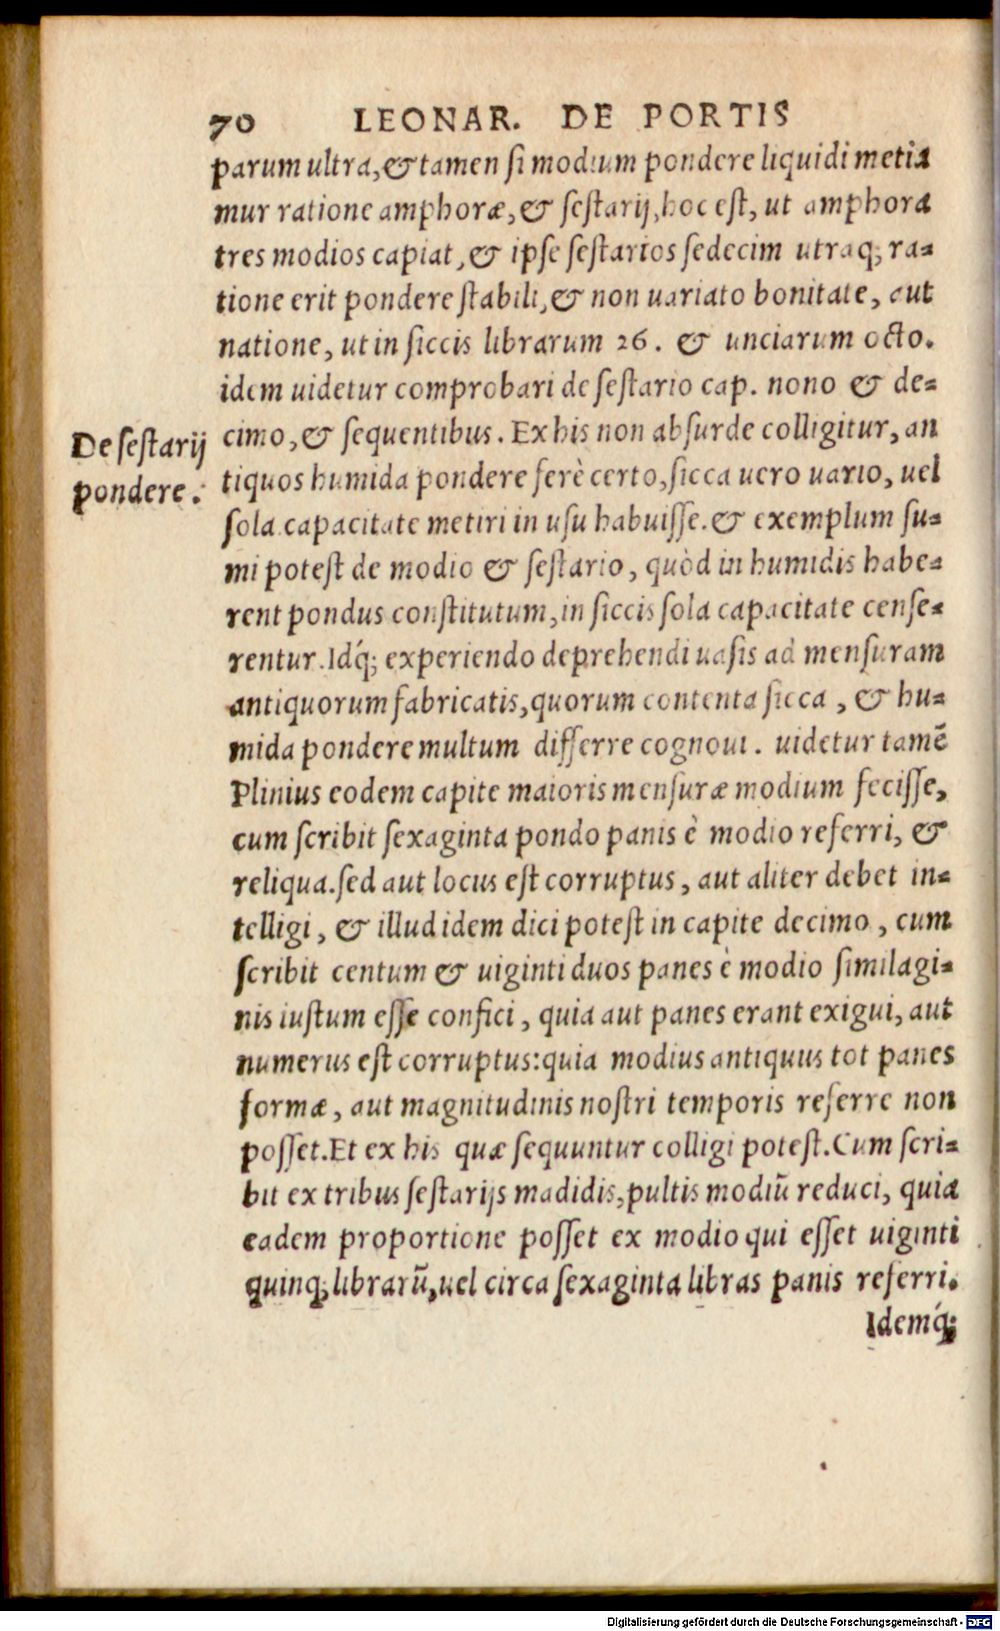 70 LEONAR. DE PORTIS
parum ultra, & tamen si modium pondere liquidi metia
mur ratione amphoræ, & sestarij, hoc est, ut amphora
tres modios capiat, & ipse sestarios sedecim utraq; ra-
tione erit pondere stabili, & non uariato bonitate, aut
natione, ut in siccis librarum 26. & unciarum octo.
idem uidetur comprobari de sestario cap. nono & de-
De sestarij
pondere.
cimo, & sequentibus. Ex his non absurde colligitur, an
tiquos humida pondere ferè certo, sicca uero uario, uel
sola capacitate metiri in usu habuisse. & exemplum su-
mi potest de modio & sestario, quòd in humidis habe-
rent pondus constitutum, in siccis sola capacitate cense-
rentur. Idq́; experiendo deprehendi uasis ad mensuram
antiquorum fabricatis, quorum contenta sicca, & hu-
mida pondere multum differre cognoui. uidetur tamē
Plinius eodem capite maioris mensuræ modium fecisse,
cum scribit sexaginta pondo panis è modio referri, &
reliqua. sed aut locus est corruptus, aut aliter debet in-
telligi, & illud idem dici potest in capite decimo, cum
scribit centum & uiginti duos panes è modio similagi-
nis iustum esse confici, quia aut panes erant exigui, aut
numerus est corruptus: quia modius antiquus tot panes
formæ, aut magnitudinis nostri temporis referre non
posset. Et ex his quæ sequuntur colligi potest. Cum scri-
bit ex tribus sestarijs madidis, pultis modiū reduci, quia
eadem proportione posset ex modio qui esset uiginti
quinq; librarū, uel circa sexaginta libras panis referri.
Idemq́;
Digitalisierung gefördert durch die Deutsche Forschungsgemeinschaft - DFG